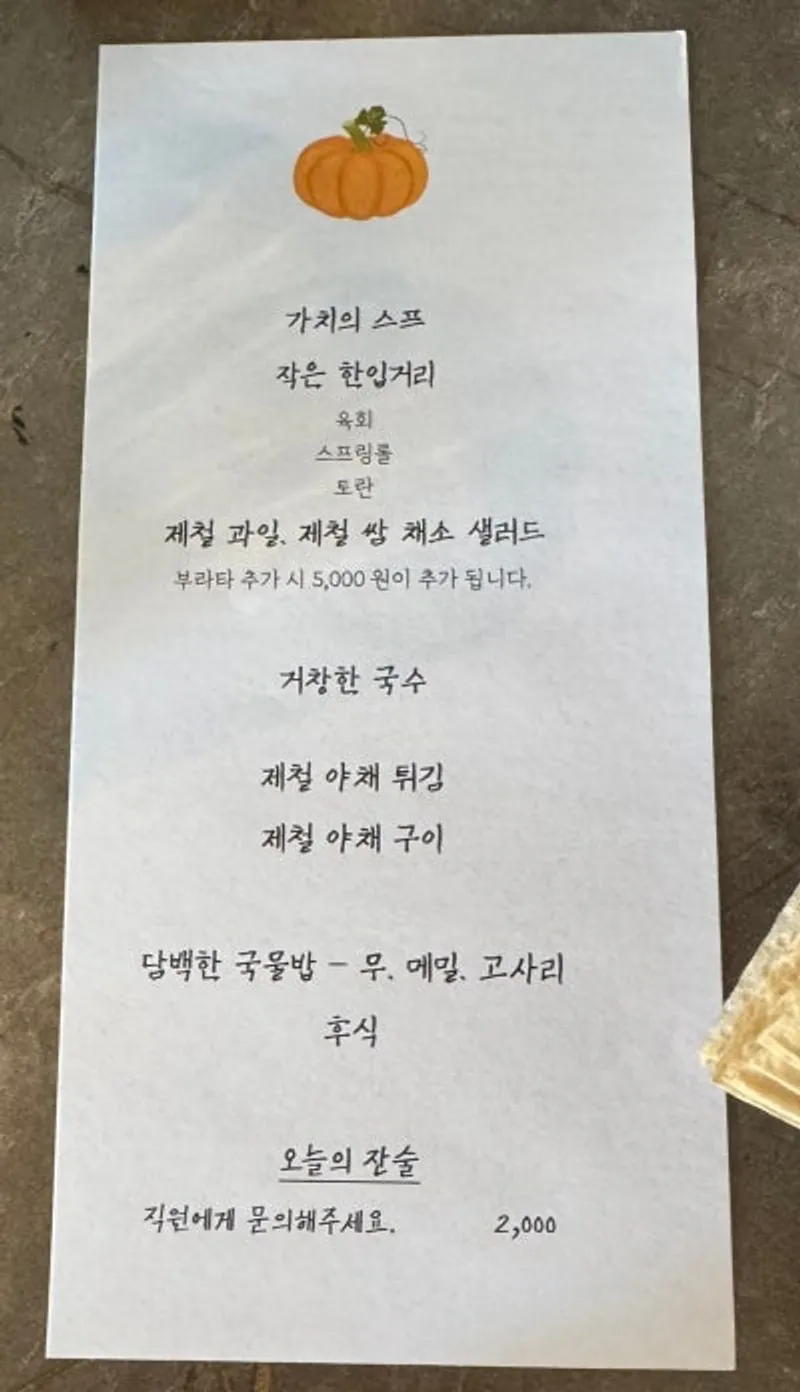 가치의 스프
작은 한입거리
육회
스프링롤
토란
제철 과일, 제철 쌈 채소 샐러드
부라타 추가 시 5,000 원이 추가 됩니다.
거창한 국수
제철 야채 튀김
제철 야채 구이
담백한 국물밥 – 무, 메밀, 고사리
후식
오늘의 잔술
직원에게 문의해주세요. 2,000